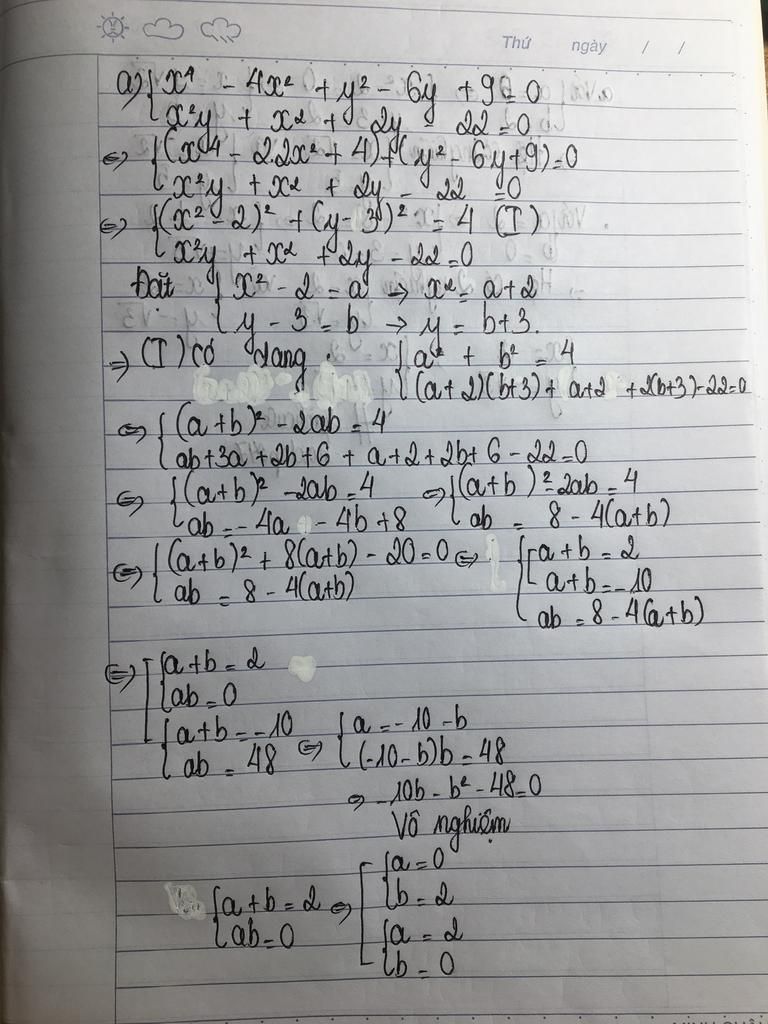 Thứ ngày / /
a) { x⁴ - 4x² + y² - 6y + 9 = 0
x²y + x² + 2y - 22 = 0
⇔ { (x⁴ - 2.2x² + 4) + (y² - 6y + 9) = 0
x²y + x² + 2y - 22 = 0
⇔ { (x² - 2)² + (y - 3)² = 4 (I)
x²y + x² + 2y - 22 = 0
Đặt { x² - 2 = a → x² = a + 2
y - 3 = b → y = b + 3.
⇒ (I) có dạng : { a² + b² = 4
(a + 2)(b + 3) + a + 2 + 2(b + 3) - 22 = 0
⇔ { (a + b)² - 2ab = 4
ab + 3a + 2b + 6 + a + 2 + 2b + 6 - 22 = 0
⇔ { (a + b)² - 2ab = 4 ⇔ { (a + b)² - 2ab = 4
ab = - 4a - 4b + 8 ab = 8 - 4(a + b)
⇔ { (a + b)² + 8(a + b) - 20 = 0 ⇔ { [ a + b = 2
ab = 8 - 4(a + b) a + b = - 10
ab = 8 - 4(a + b)
⇔ [ { a + b = 2
ab = 0
{ a + b = - 10 ⇔ { a = - 10 - b
ab = 48 (- 10 - b)b = 48
⇒ - 10b - b² - 48 = 0
Vô nghiệm
{ a + b = 2 ⇔ [ { a = 0
ab = 0 b = 2
{ a = 2
b = 0